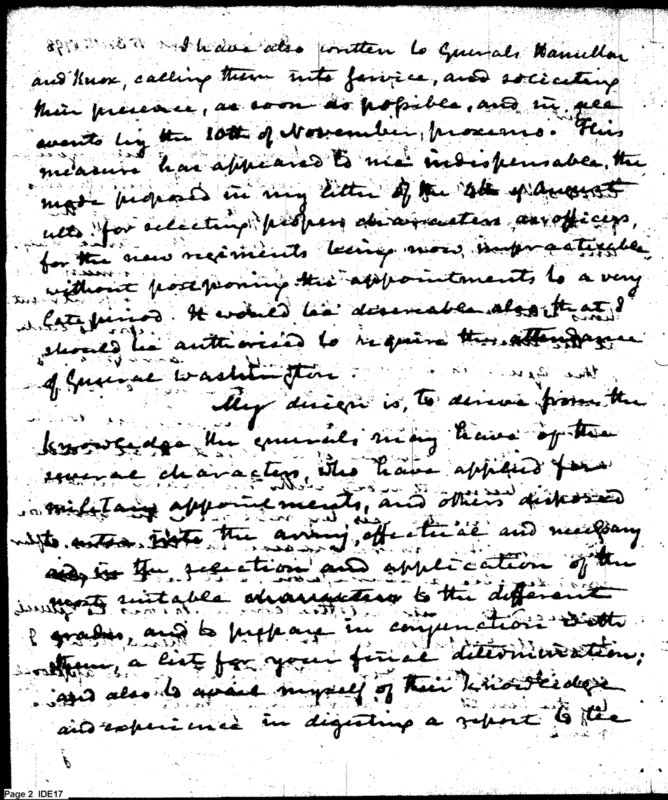 I have also written to Generals Hamilton
and Knox, calling them into service, and soliciting
their presence, as soon as possible, and in all
events by the 10th of November, proximo. This
measure has appeared to me indispensable, the
mode proposed in my letter of the 4th of August
ulto. for selecting proper characters as officers,
for the new regiments being now impracticable,
without postponing the appointments to a very
late period. It would be desireable also, that I
should be authorised to require the attendance
of General Washington.
My design is, to derive from the
knowledge the generals may have of the
several characters, who have applied for
military appointments, and others disposed
to enter into the army, effectual and necessary
aid, in the selection and application of the
most suitable characters to the different
grades, and to prepare in conjunction with
them, a list for your final determination;
and also to avail myself of their knowledge
and experience in digesting a report to be
Page 2 IDE17